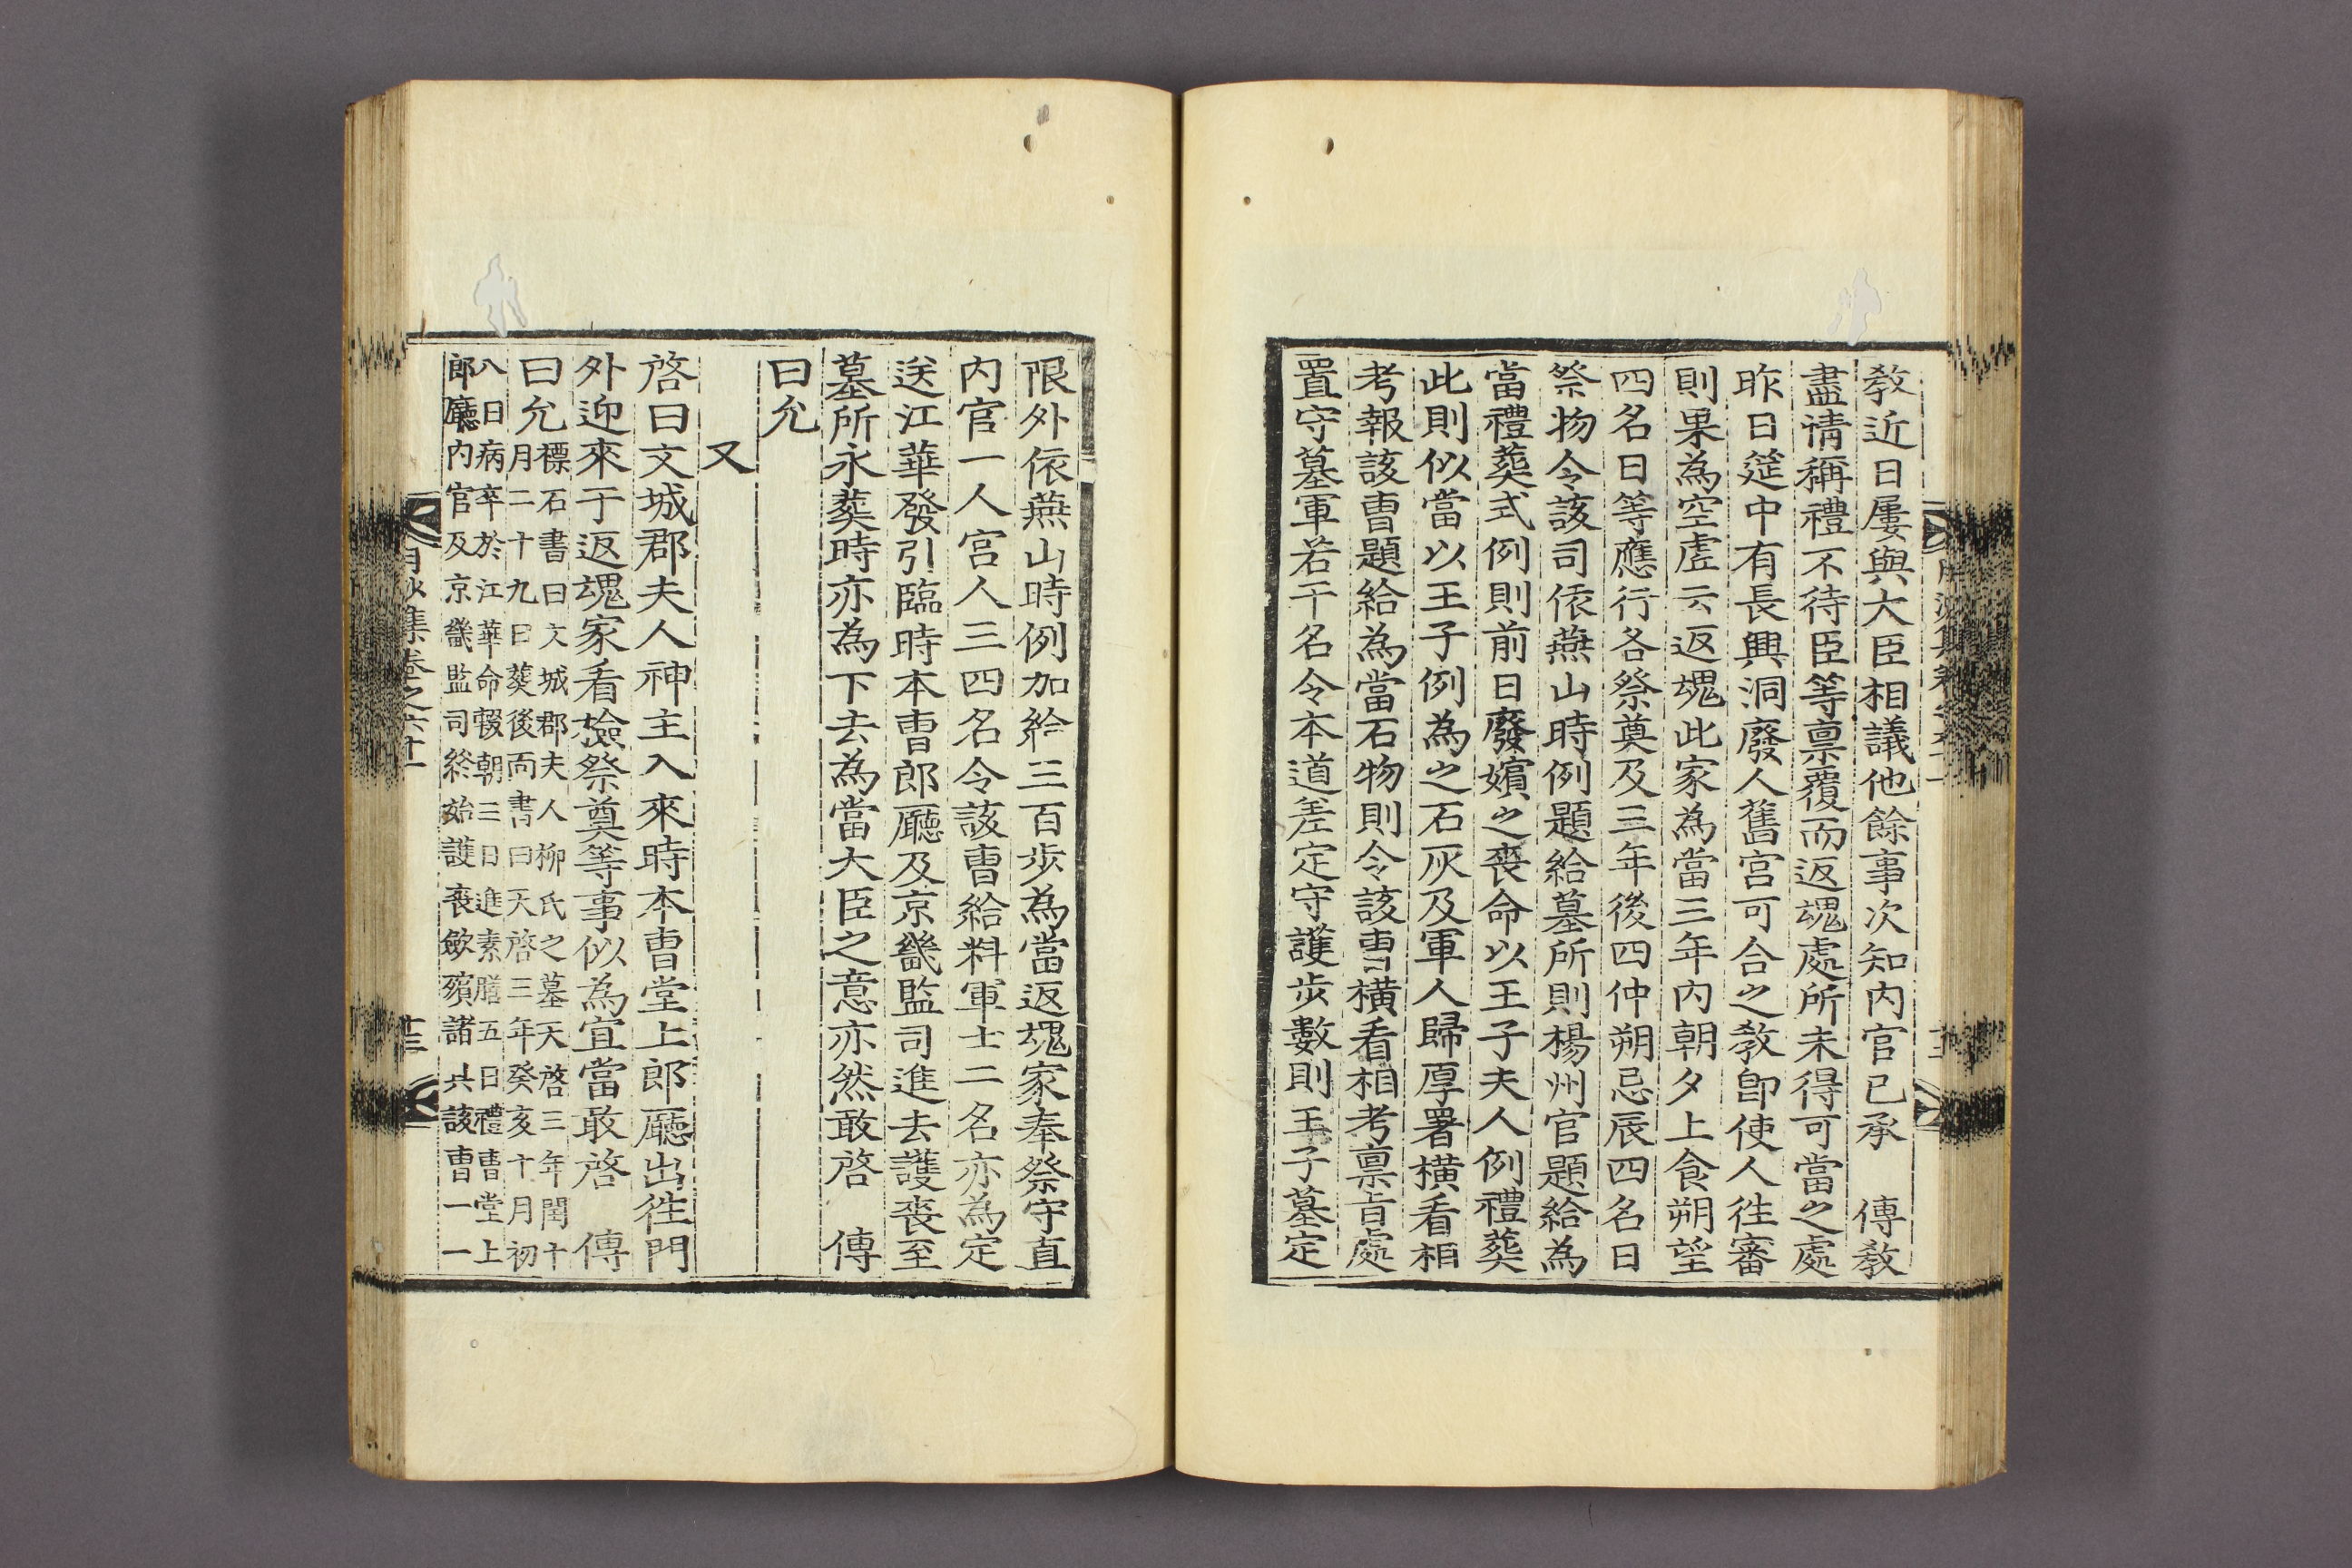 教近日屢與大臣相議他餘事次知內官已承　傳教
盡情稱禮不待臣等禀覆而返魂處所未得可當之處
昨日筵中有長興洞廢人舊宮可合之教卽使人徃審
則果為空虛云返魂此家為當三年內朝夕上食朔望
四名日等應行各祭奠及三年後四仲朔忌辰四名日
祭物令該司依燕山時例題給墓所則楊州官題給為
當禮葬式例則前日廢嬪之喪命以王子夫人例禮葬
此則似當以王子例為之石灰及軍人歸厚署橫看相
考報該曹題給為當石物則令該曹橫看相考禀旨處
置守墓軍若干名令本道差定守護步數則王子墓定
限外依燕山時例加給三百步為當返魂家奉祭守直
內官一人宮人三四名令該曹給料軍士二名亦為定
送江華發引臨時本曹郎廳及京畿監司進去護喪至
墓所永葬時亦為下去為當大臣之意亦然敢啓　傳
曰允
又
啓曰文城郡夫人神主入來時本曹堂上郎廳出徃門
外迎來于返魂家看檢祭奠等事似為宜當敢啓　傳
曰允
標石書曰文城郡夫人柳氏之墓天啓三年閏十
月二十九日葬後面書曰天啓三年癸亥十月初
八日病卒於江華命輟朝三日進素膳五日禮曹堂上
郎廳內官及京畿監司終始護喪斂殯諸具該曹一一